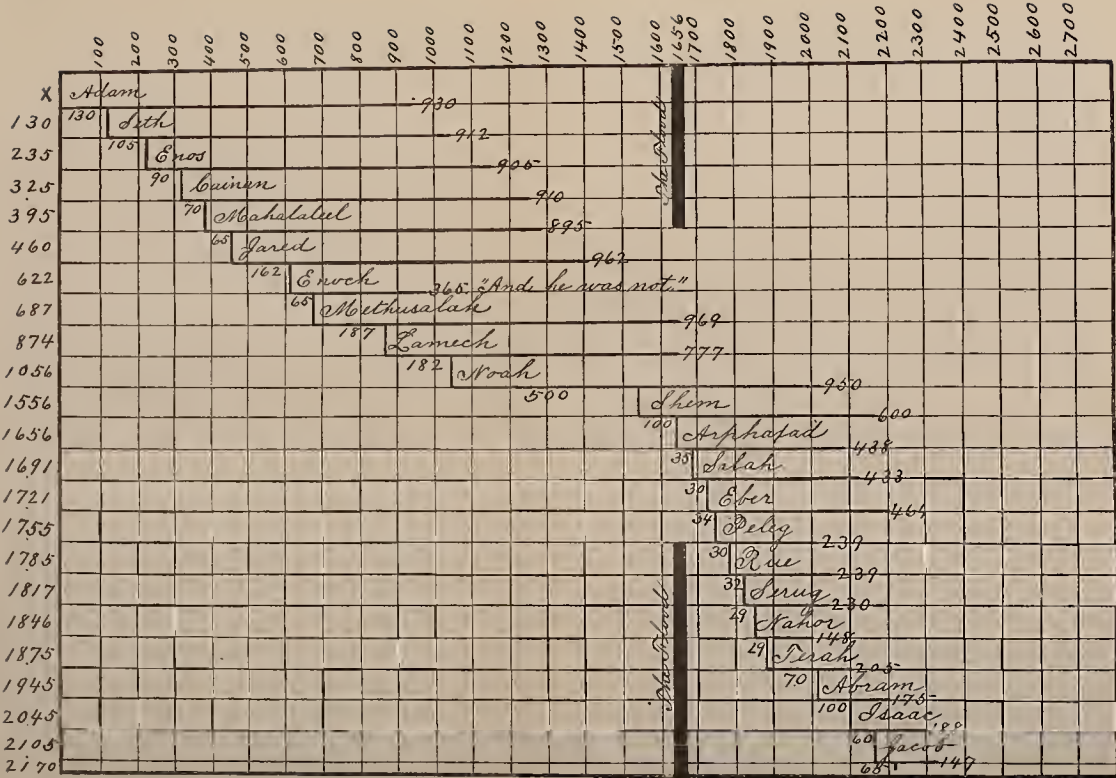 100 200 300 400 500 600 700 800 900 1000 1100 1200 1300 1400 1500 1600 1656 1700 1800 1900 2000 2100 2200 2300 2400 2500 2600 2700
X Adam 930
130 130 Seth 912
235 105 Enos 905
325 90 Cainan 910
395 70 Mahalaleel 895
460 65 Jared 962
622 162 Enoch 365 "And he was not."
687 65 Methusalah 969
874 187 Lamech 777
1056 182 Noah 950
1556 500 Shem 600
1656 100 Arphaxad 438
1691 35 Salah 433
1721 30 Eber 464
1755 34 Peleg 239
1785 30 Rue 239
1817 32 Serug 230
1846 29 Nahor 148
1875 29 Terah 205
1945 70 Abram 175
2045 100 Isaac
2105 60 Jacob 147
2170
The Flood
The Flood